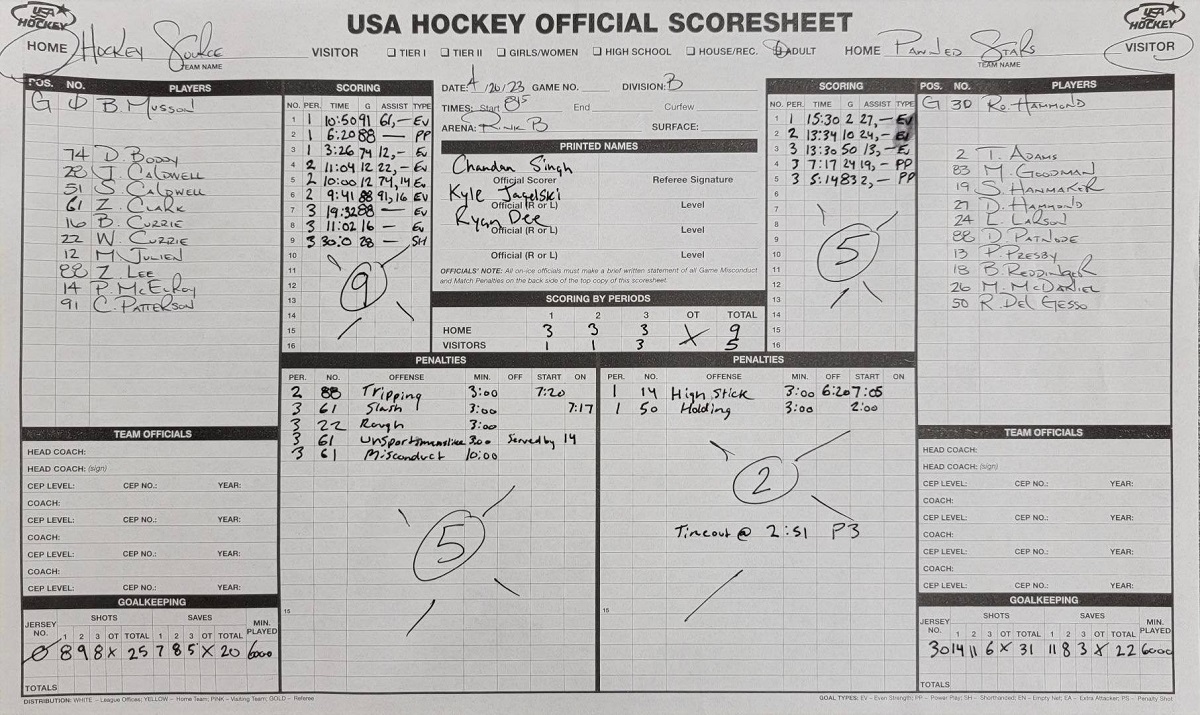 USA HOCKEY OFFICIAL SCORESHEET
USA HOCKEY
USA HOCKEY
HOME Hockey Source
TEAM NAME
VISITOR ☐ TIER I ☐ TIER II ☐ GIRLS/WOMEN ☐ HIGH SCHOOL ☐ HOUSE/REC. ☐ ADULT
HOME Pawned Stars
TEAM NAME
VISITOR
POS. NO. PLAYERS
G Ø B. Musson
74 D. Boddy
28 T. Caldwell
51 S. Caldwell
61 Z. Clark
16 B. Currie
22 W. Currie
12 M. Julien
88 Z. Lee
14 P. McElroy
91 C. Patterson
SCORING
NO. PER. TIME G ASSIST TYPE
1 1 10:50 91 61, — EV
2 1 6:20 88 — PP
3 1 3:26 74 12, — EV
4 2 11:04 12 22, — EV
5 2 10:00 12 74, 14 EV
6 2 9:41 88 91, 16 EV
7 3 19:32 88 — EV
8 3 11:02 16 — EV
9 3 30:0 28 — SH
10
11
12
13
14
15
16
9
DATE: 4/20/23 GAME NO. DIVISION: B
TIMES: Start 815 End Curfew
ARENA: Rink B SURFACE:
PRINTED NAMES
Chandan Singh
Official Scorer Referee Signature
Kyle Jagelski
Official (R or L) Level
Ryan Dee
Official (R or L) Level
Official (R or L) Level
OFFICIALS' NOTE: All on-ice officials must make a brief written statement of all Game Misconduct
and Match Penalties on the back side of the top copy of this scoresheet.
SCORING BY PERIODS
1 2 3 OT TOTAL
HOME 3 3 3 X 9
VISITORS 1 1 3 5
SCORING
NO. PER. TIME G ASSIST TYPE
1 1 15:30 2 27, — EV
2 2 13:34 10 24, — EV
3 3 13:30 50 13, — EV
4 3 7:17 24 19, — PP
5 3 5:14 83 2, — PP
6
7
8
9
10
11
12
13
14
15
16
5
POS. NO. PLAYERS
G 30 Ro. Hammond
2 T. Adams
83 M. Goodman
19 S. Hanmaker
27 D. Hammond
24 L. Larson
88 D. Patnode
13 P. Presby
18 B. Reddinger
26 M. McDaniel
50 R. Del Gesso
PENALTIES
PER. NO. OFFENSE MIN. OFF START ON
2 88 Tripping 3:00 7:20
3 61 Slash 3:00 7:17
3 22 Rough 3:00
3 61 Unsportsmanslike 3:00 Served by 14
3 61 Misconduct 10:00
5
15
PENALTIES
PER. NO. OFFENSE MIN. OFF START ON
1 14 High Stick 3:00 6:20 7:05
1 50 Holding 3:00 2:00
2
Timeout @ 2:51 P3
15
TEAM OFFICIALS
HEAD COACH:
HEAD COACH: (sign)
CEP LEVEL: CEP NO.: YEAR:
COACH:
CEP LEVEL: CEP NO.: YEAR:
COACH:
CEP LEVEL: CEP NO.: YEAR:
COACH:
CEP LEVEL: CEP NO.: YEAR:
GOALKEEPING
SHOTS SAVES
JERSEY NO. 1 2 3 OT TOTAL 1 2 3 OT TOTAL MIN. PLAYED
Ø 8 9 8 X 25 7 8 5 X 20 6000
TOTALS
TEAM OFFICIALS
HEAD COACH:
HEAD COACH: (sign)
CEP LEVEL: CEP NO.: YEAR:
COACH:
CEP LEVEL: CEP NO.: YEAR:
COACH:
CEP LEVEL: CEP NO.: YEAR:
COACH:
CEP LEVEL: CEP NO.: YEAR:
GOALKEEPING
SHOTS SAVES
JERSEY NO. 1 2 3 OT TOTAL 1 2 3 OT TOTAL MIN. PLAYED
30 14 11 6 X 31 11 8 3 X 22 6000
TOTALS
DISTRIBUTION: WHITE – League Offices; YELLOW – Home Team; PINK – Visiting Team; GOLD – Referee
GOAL TYPES: EV – Even Strength; PP – Power Play; SH – Shorthanded; EN – Empty Net; EA – Extra Attacker; PS – Penalty Shot